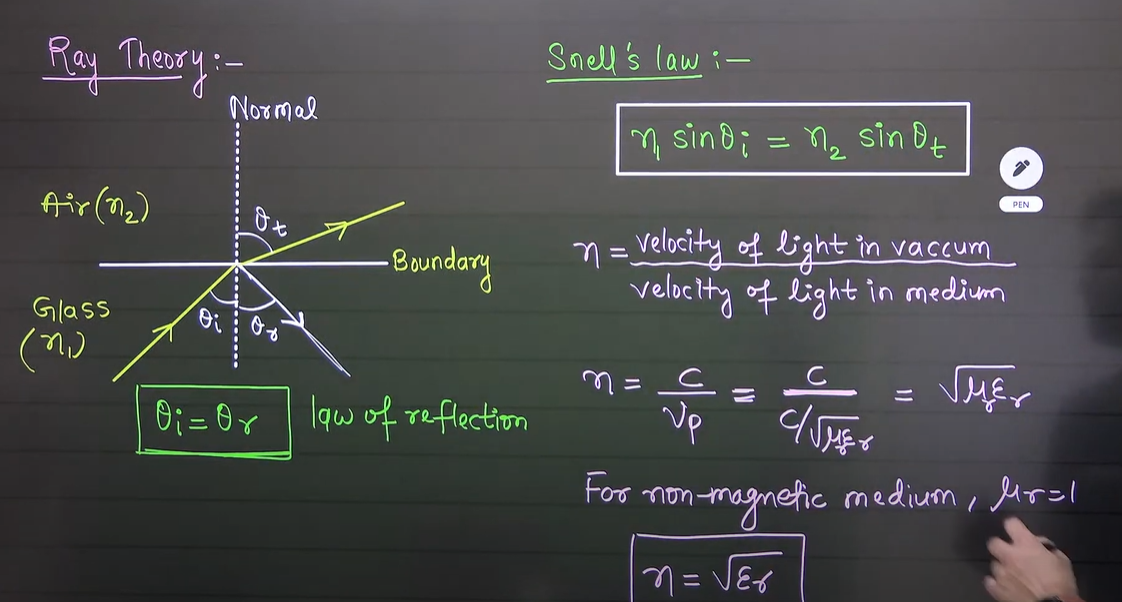 Ray Theory :-
Normal
Air (η₂)
θt
Boundary
Glass
(η₁)
θi θr
θi = θr law of reflection
Snell's law :-
η₁ sinθi = η₂ sinθt
PEN
η = velocity of light in vaccum / velocity of light in medium
η = c/νp = c/(c/√μrεr) = √μrεr
For non-magnetic medium, μr=1
η = √εr